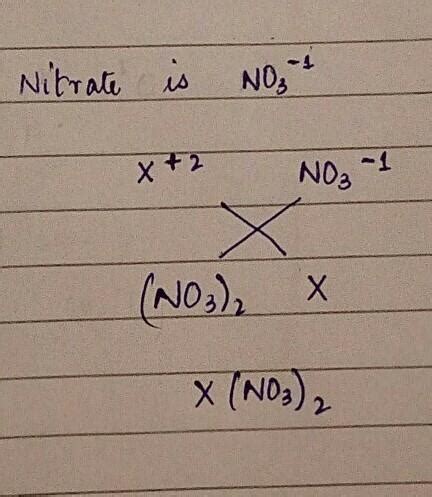 Nitrate is NO₃⁻¹
X⁺² NO₃⁻¹
(NO₃)₂ X
X (NO₃)₂